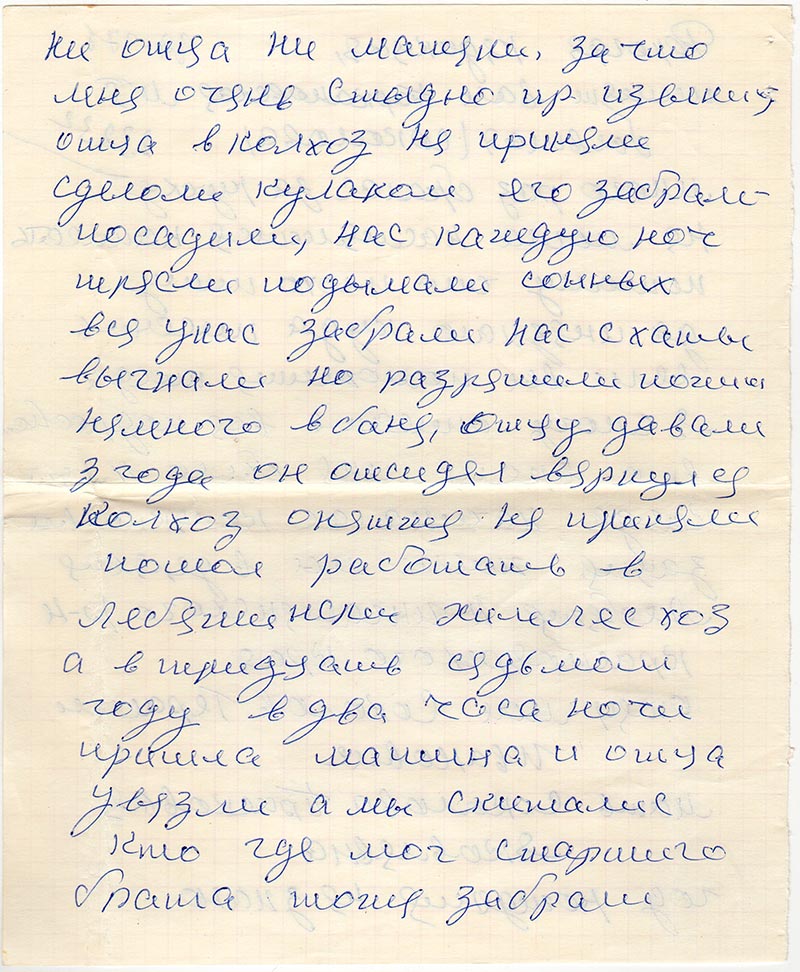 ни отца ни матери, за что
мне очень стыдно при извините
отца в колхоз не приняли
сделоли кулаком его забрали
посадили, нас каждую ноч
трясли подымали сонных
все унас забрали нас с хаты
выгнали но разрешили пожит
немного в бане, отцу давали
3 года он отсидел вернулся
колхоз опятже не приняли
пошол работать в
Лебяжински химлесхоз
а в тридцать седьмом
году в два часа ночи
пришла машина и отца
увезли а мы скиталис
кто где мог старшего
брата тоже забрали